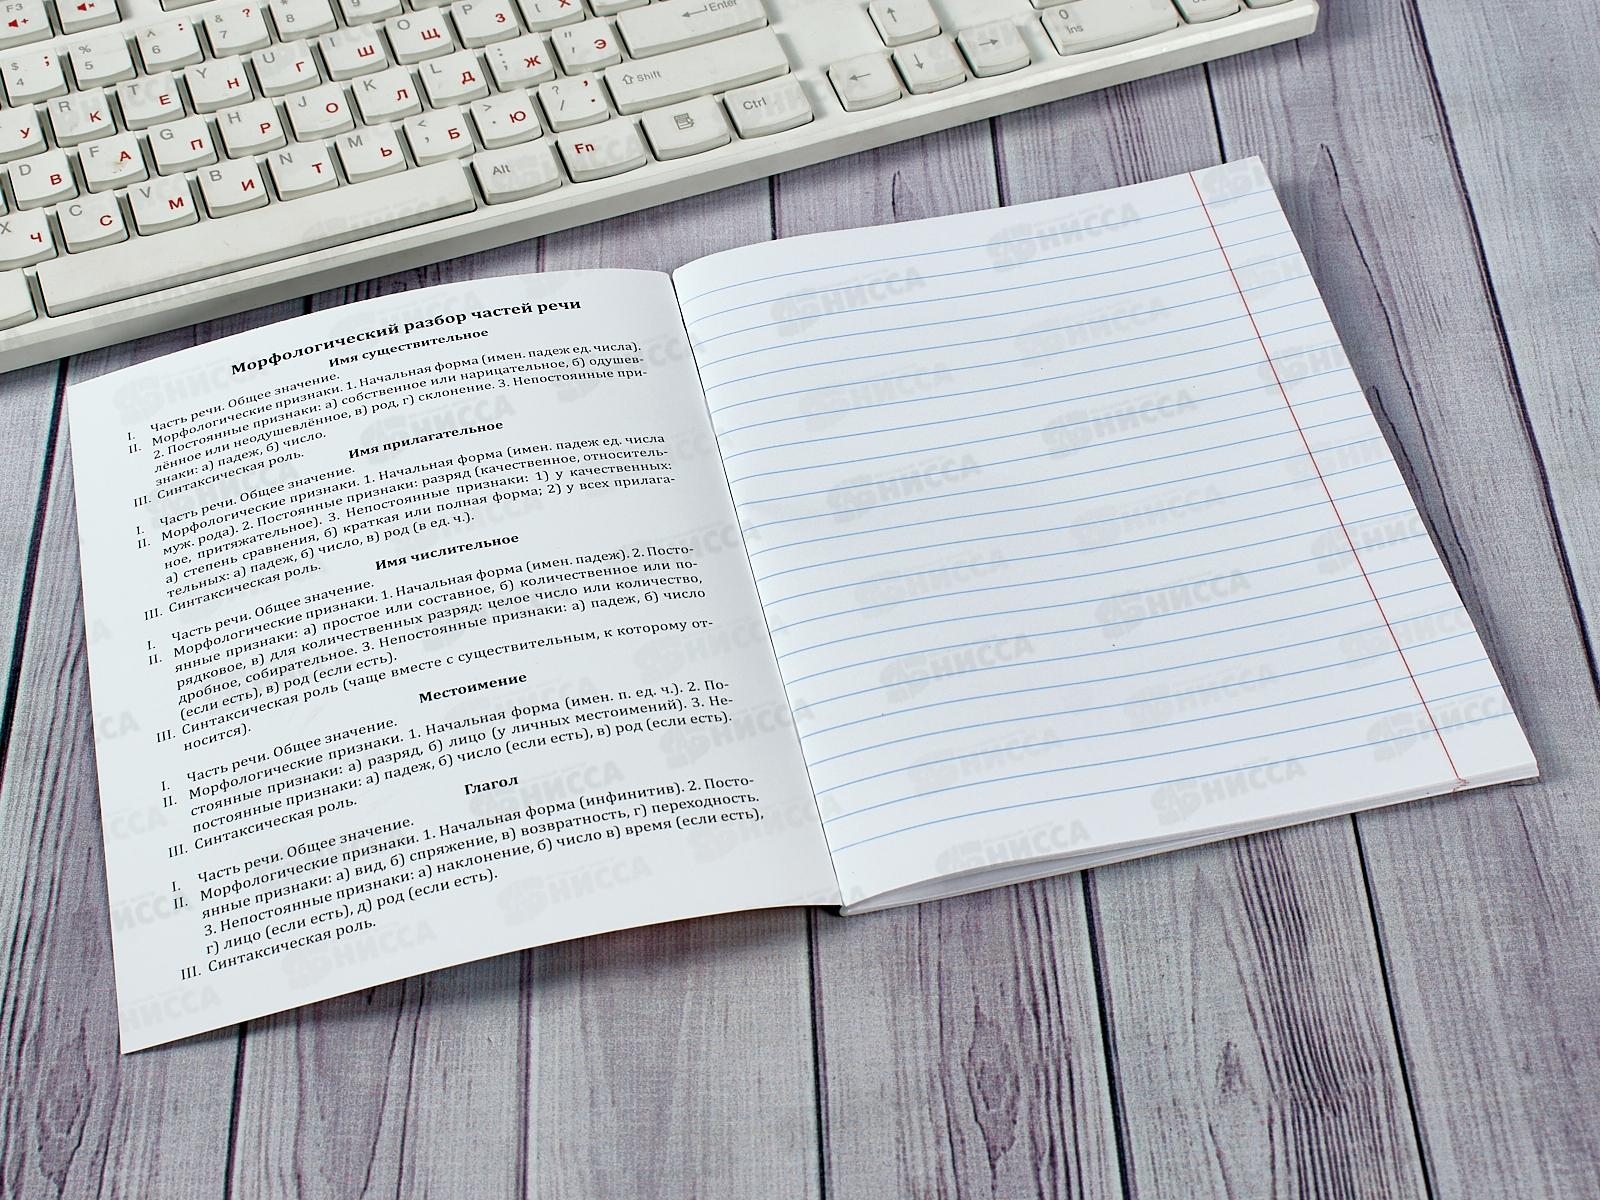 Морфологический разбор частей речи
Имя существительное
I. Часть речи. Общее значение.
II. Морфологические признаки. 1. Начальная форма (имен. падеж ед. числа).
2. Постоянные признаки: а) собственное или нарицательное, б) одушев-
лённое или неодушевлённое, в) род, г) склонение. 3. Непостоянные при-
знаки: а) падеж, б) число.
III. Синтаксическая роль.
Имя прилагательное
I. Часть речи. Общее значение.
II. Морфологические признаки. 1. Начальная форма (имен. падеж ед. числа
муж. рода). 2. Постоянные признаки: разряд (качественное, относитель-
ное, притяжательное). 3. Непостоянные признаки: 1) у качественных:
а) степень сравнения, б) краткая или полная форма; 2) у всех прилага-
тельных: а) падеж, б) число, в) род (в ед. ч.).
III. Синтаксическая роль.
Имя числительное
I. Часть речи. Общее значение.
II. Морфологические признаки. 1. Начальная форма (имен. падеж). 2. Посто-
янные признаки: а) простое или составное, б) количественное или по-
рядковое, в) для количественных разряд: целое число или количество,
дробное, собирательное. 3. Непостоянные признаки: а) падеж, б) число
(если есть), в) род (если есть).
III. Синтаксическая роль (чаще вместе с существительным, к которому от-
носится).
Местоимение
I. Часть речи. Общее значение.
II. Морфологические признаки. 1. Начальная форма (имен. п. ед. ч.). 2. По-
стоянные признаки: а) разряд, б) лицо (у личных местоимений). 3. Не-
постоянные признаки: а) падеж, б) число (если есть), в) род (если есть).
III. Синтаксическая роль.
Глагол
I. Часть речи. Общее значение.
II. Морфологические признаки. 1. Начальная форма (инфинитив). 2. Посто-
янные признаки: а) вид, б) спряжение, в) возвратность, г) переходность.
3. Непостоянные признаки: а) наклонение, б) число в) время (если есть),
г) лицо (если есть), д) род (если есть).
III. Синтаксическая роль.
F3
$ 4 ; % 5 ^ 6 : & 7 ?
R К T Е Y Н U Г I Ш O Щ P З Enter
D В F А G П H Р J О K Л L Д ; Ж " Э Shift
X Ч C С V М B И N Т M Ь < , Б > . Ю ? / Ctrl
Alt Fn
0 Ins
НИССА